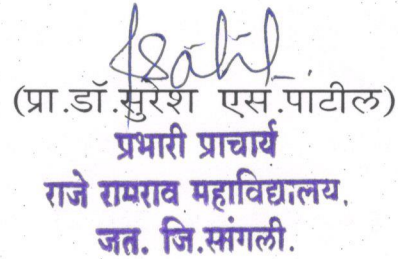 (प्रा.डॉ.सुरेश एस.पाटील)
प्रभारी प्राचार्य
राजे रामराव महाविद्यालय,
जत. जि.सांगली.